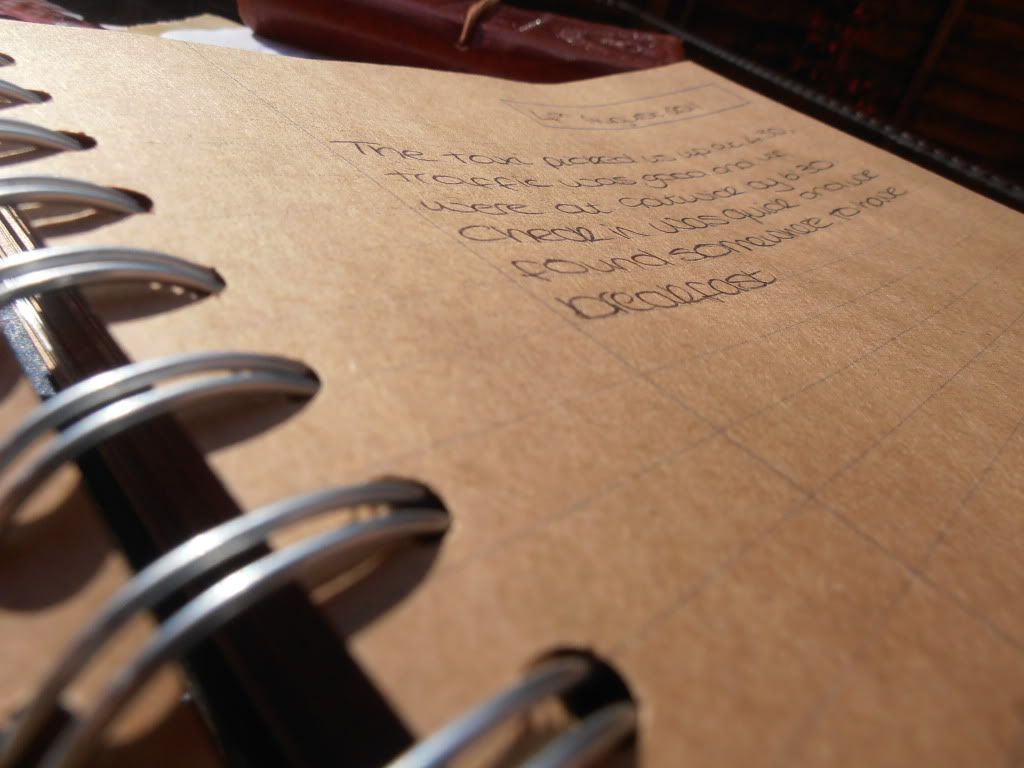 August 2011
The taxi picked us up at 4:30,
traffic was good and we
were at Gatwick by 6:30
Check in was quick and we
found somewhere to have
breakfast